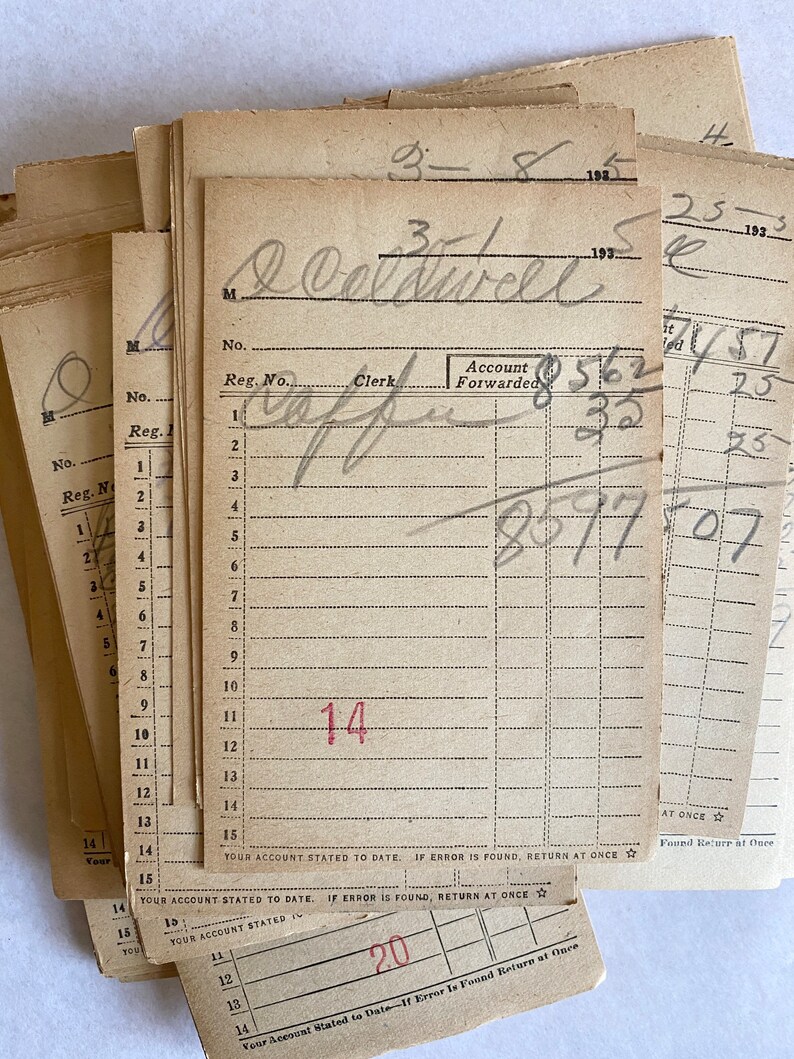 4
3- 8 1935
25-5
193
3-1 1935
M O Coldwell
No.
Reg. No. Clerk Account Forwarded 8562
1 Coffee 35
2
3
4
5 8597
6
7
8
9
10
11 14
12
13
14
15
YOUR ACCOUNT STATED TO DATE. IF ERROR IS FOUND, RETURN AT ONCE ☆
457
25
25
507
AT ONCE ☆
Found Return at Once
M
No.
Reg.
1
2
3
4
5
6
7
8
9
10
11
12
13
14
15
YOUR ACCOUNT STATED TO DATE. IF ERROR IS FOUND, RETURN AT ONCE ☆
M O
No.
Reg. No
1
2
3
4
5
6
14
Your
14
15
15
YOUR ACCOUNT STATED TO
11
12 20
13
14
Your Account Stated to Date—If Error Is Found Return at Once